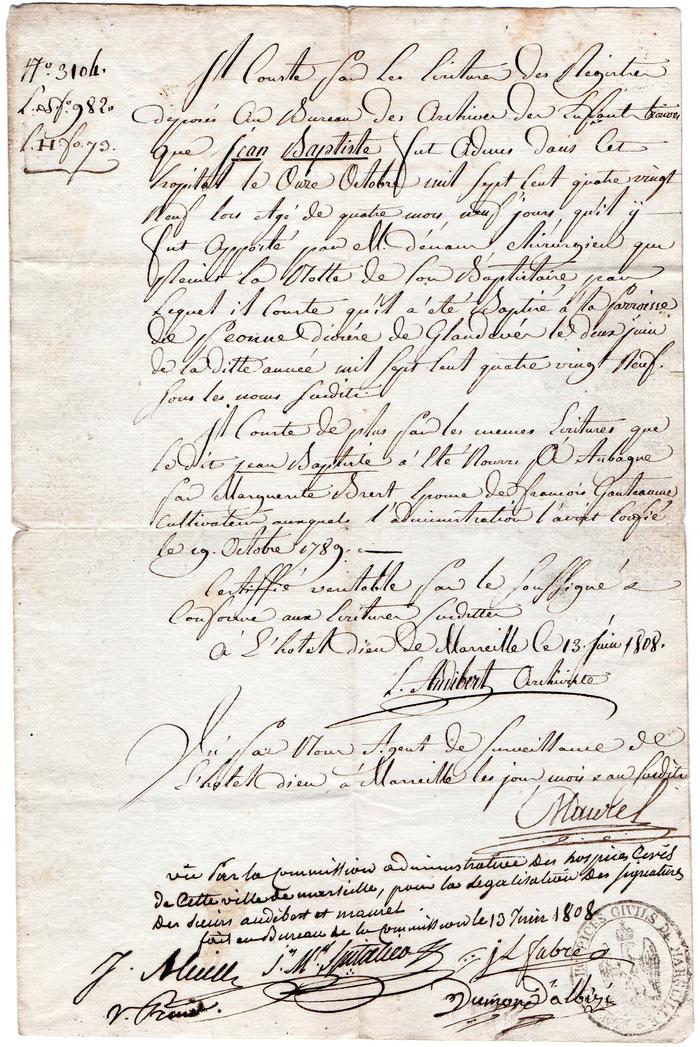 N.º 3104.
L. A fº. 982.
L. H fº. 73.
Il Conste par Les Ecritures des Registres
déposés au Bureau des Archives des Enfants trouvés
que jean Baptiste fut Admis dans Cet
hopital le Onze Octobre mil sept Cent quatre vingt
Neuf lors Agé de quatre mois neuf jours, qu'il y
fut Apporté par M. chirurgien que
la Notte de son Baptistaire par
Lequel il Conste qu'il à été Baptisé à la parroisse
de Peonne diocése de Glandevés le deux juin
de la ditte année mil sept Cent quatre vingt Neuf.
sous les noms susdits
Il Conste de plus par les memes Ecritures que
le dit jean Baptiste à été Nourri à Aubagne
par Marguerite Brest Epouse de françois Ganteaume
Cultivateur auxquels l'administration l'avoit Confié
le 19. Octobre 1789. —
Certiffié veritable par le soussigné &
Conforme aux Ecritures susdittes
à L'hotel dieu de Marseille le 13. juin 1808.
L. Audibert Archiviste
Vu par Nous Agent de surveillance de
L'hotel dieu à Marseille les jour mois & an susdits
Maurel
vu par la Commission administrative des hospices Civils
de Cette ville de marseille, pour la Legalisation des signatures
des sieurs audibert et maurel.
fait en Bureau de la Commission le 13 Juin 1808
jh fabre
HOSPICES CIVILS DE MARSEILLE